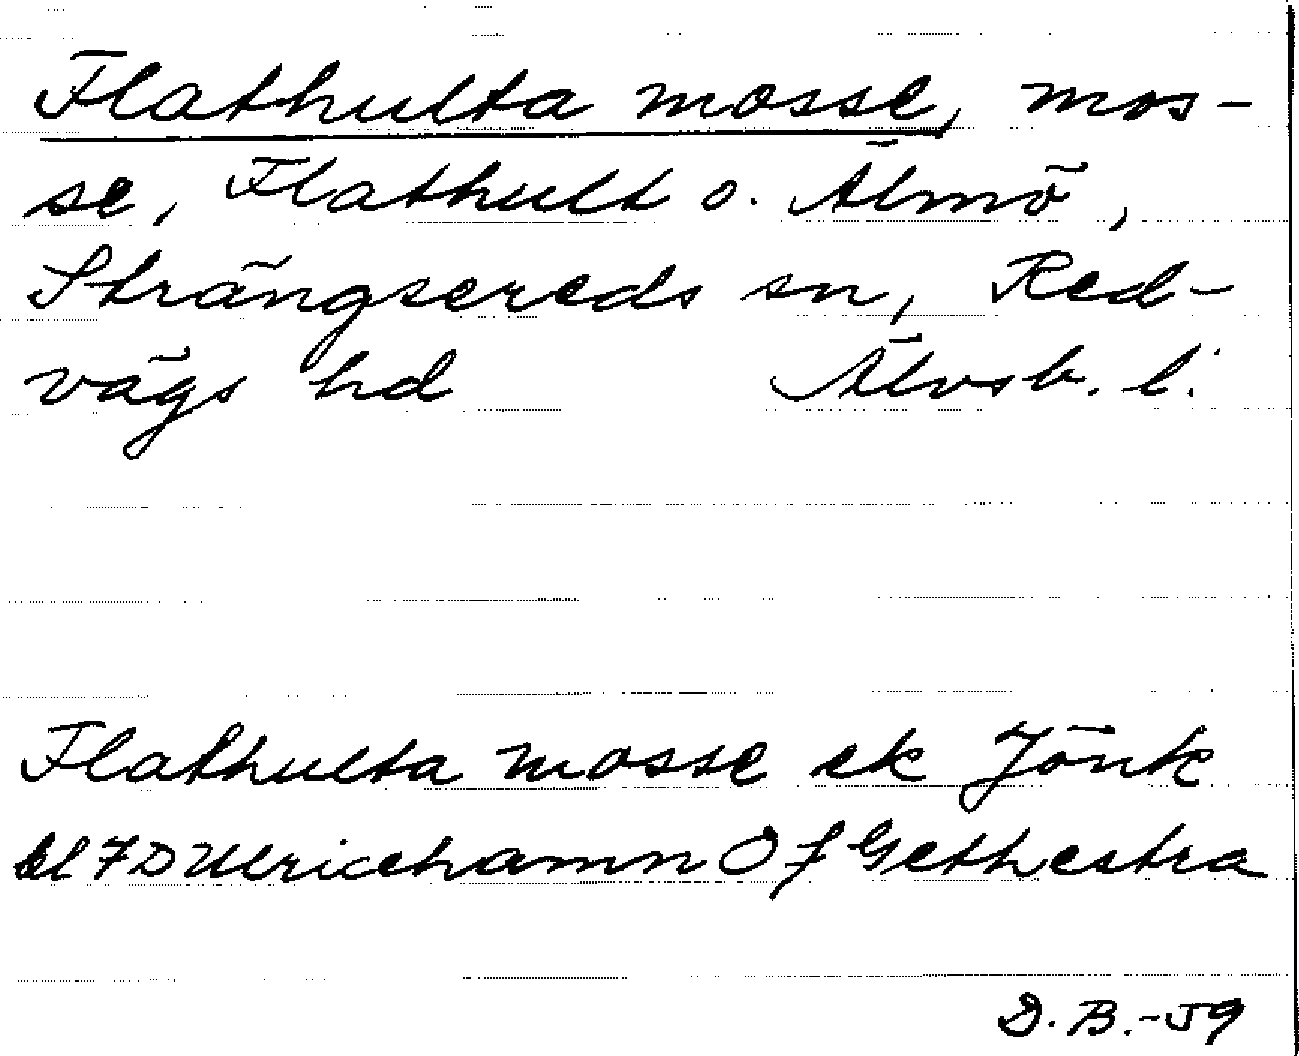 Flathulta mosse, mos-
se, Flathult o. Älmö,
Strängsereds sn, Red-
vägs hd Älvsb. l.
Flathulta mosse ek Jönk
bl 7D Ulricehamn Of Gethestra
D. B.-59